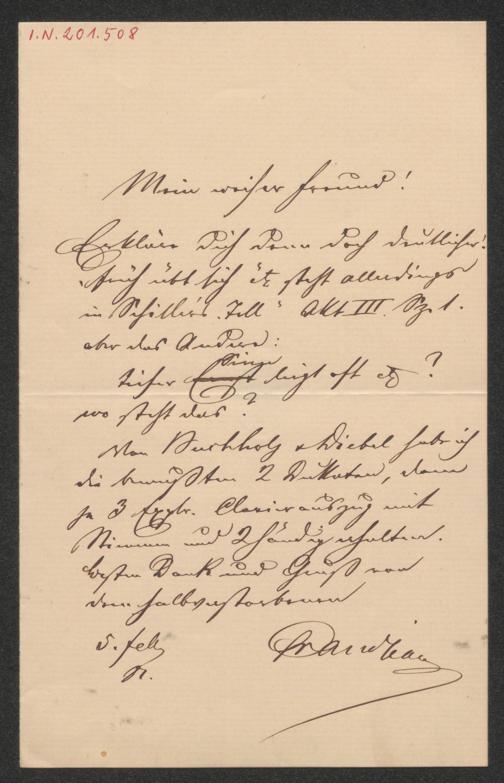 I.N. 201.508
Mein weiser Freund!
Erkläre Dich denn doch deutlicher!
„Früh übt sich" etc steht allerdings
in Schiller's „Tell" Akt III. Sz. 1.
aber das Andere:
Sinn
tiefer liegt oft etc?
wo steht das?
Von Buchholz & Diebel habe ich
die bewußten 2 Dukaten, dann
je 3 Explr. Clavierauszug mit
Stimmen und 2händig erhalten.
Besten Dank und Gruß von
dem halbverstorbenen
5. Feb